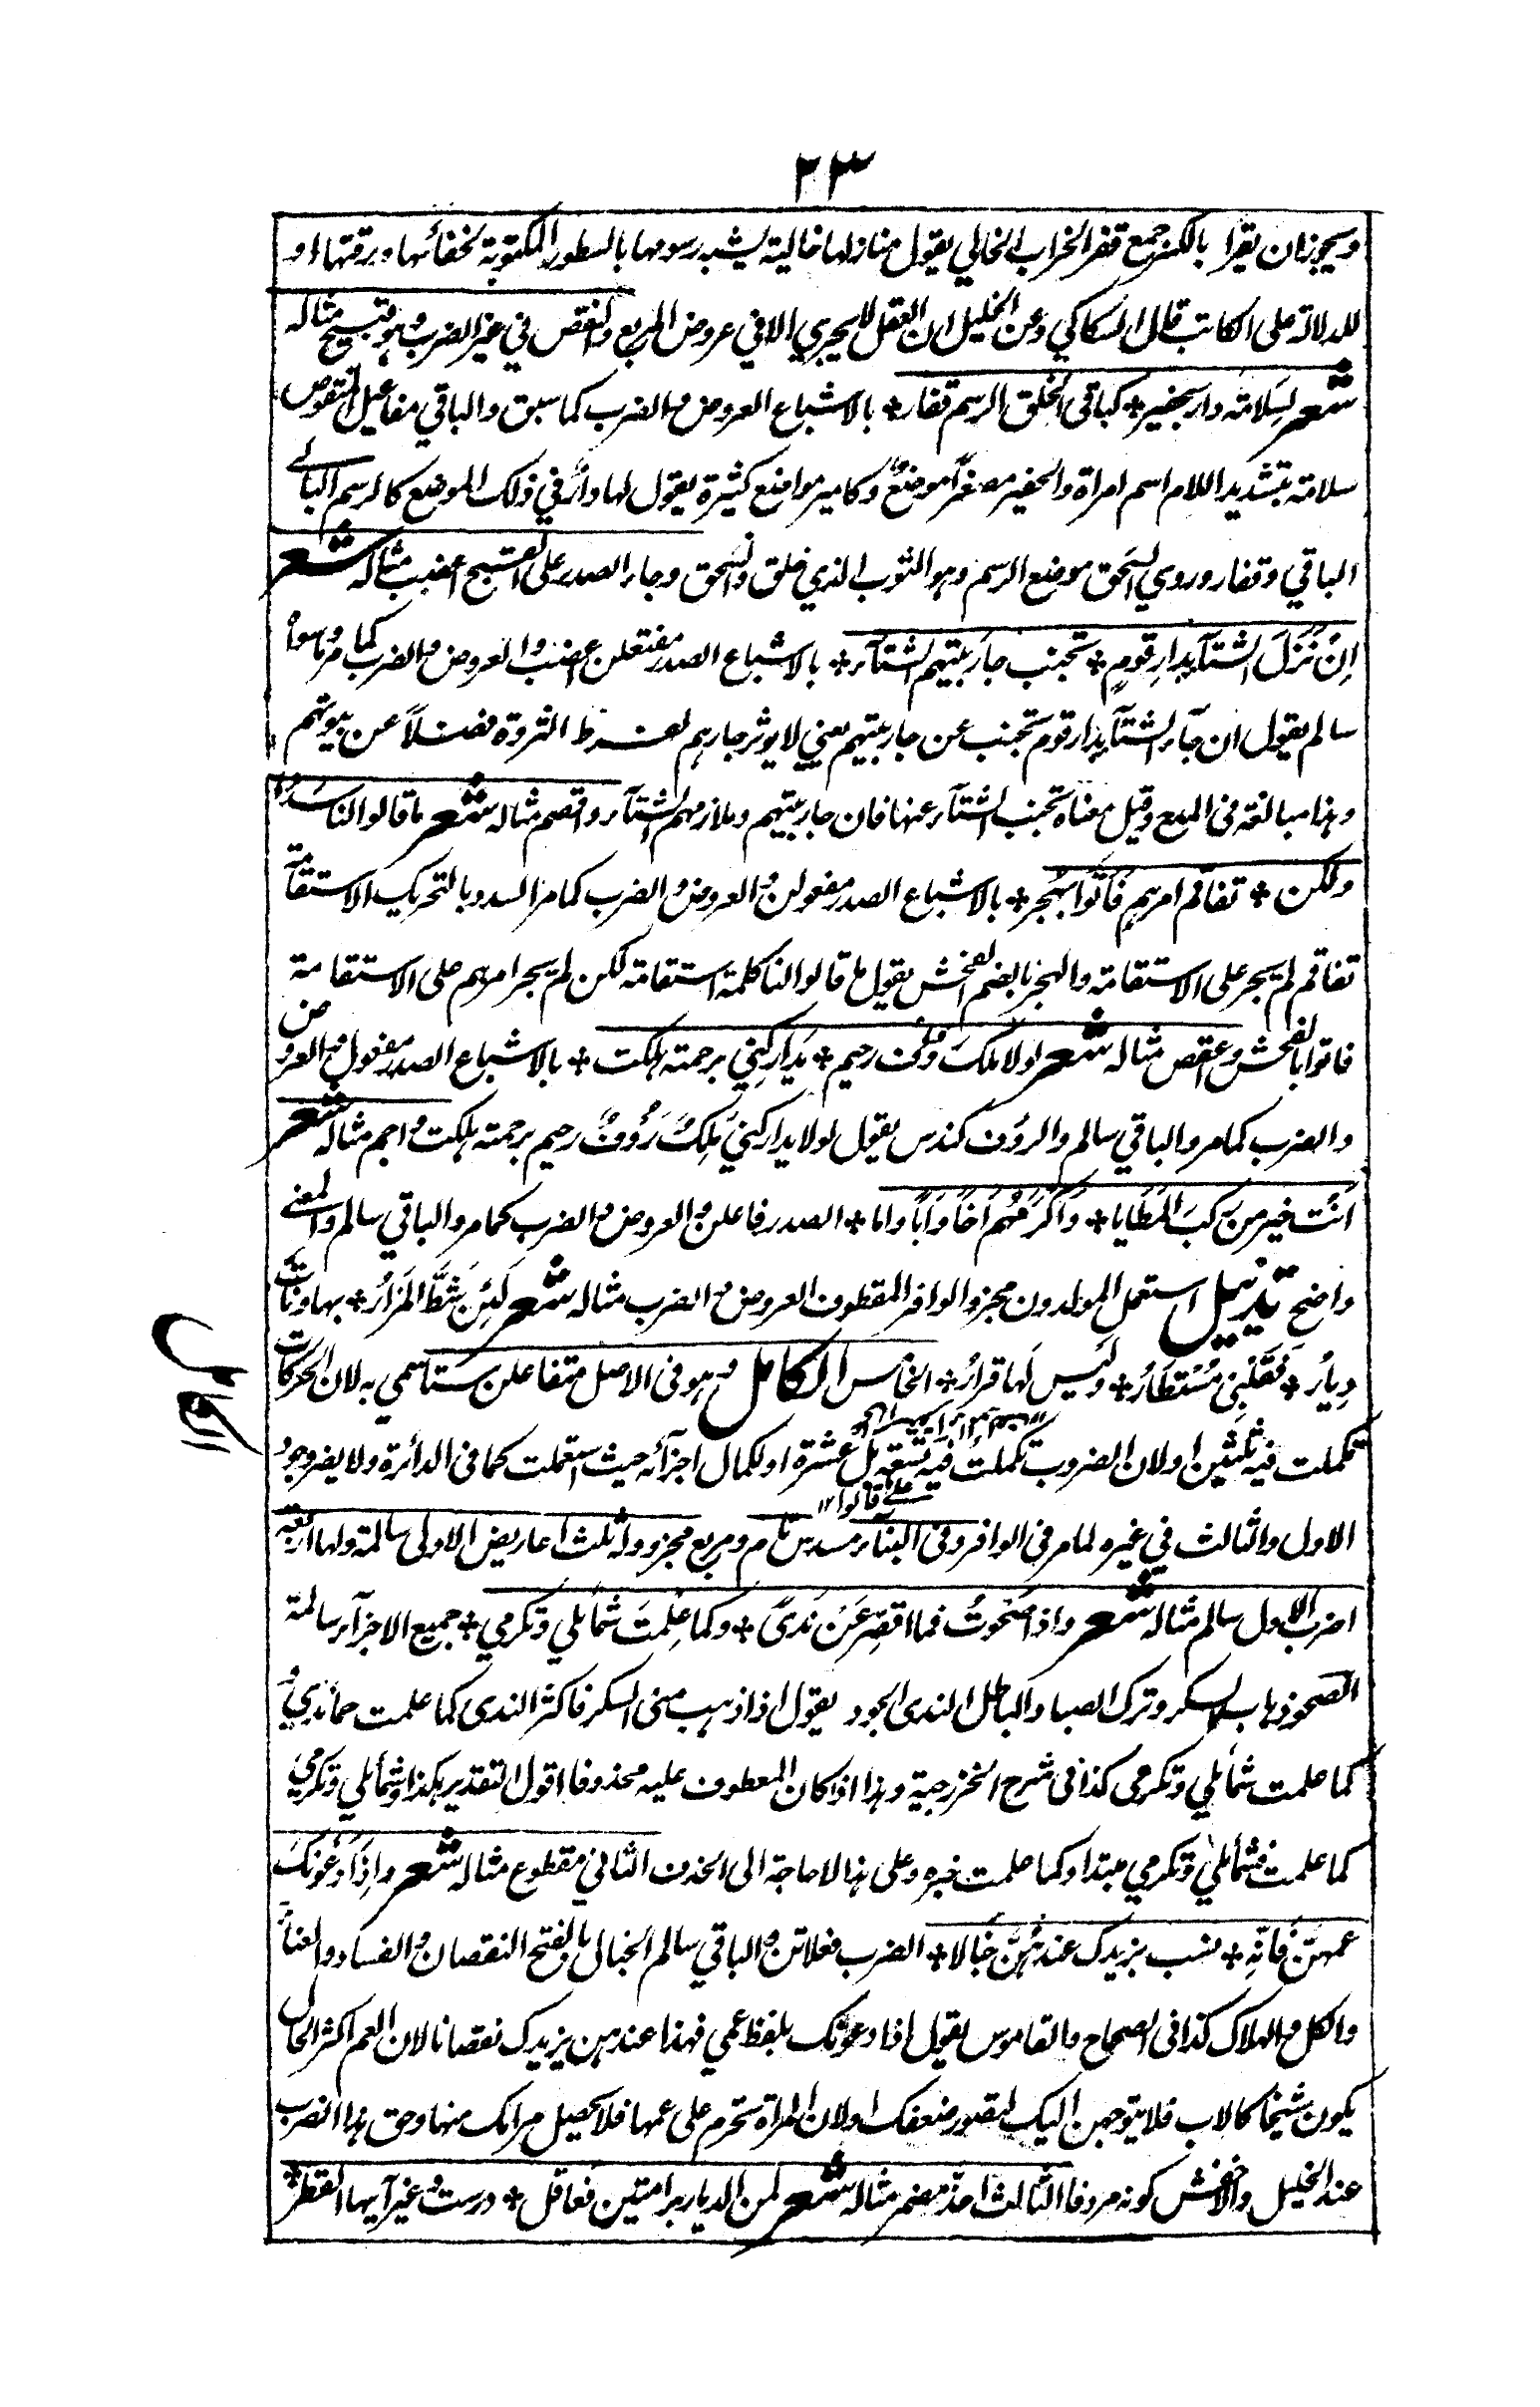 ٢٣
ويجوز ان يقرا بالكسر جمع قفر الخراب الخالي يقول منازلها خالية يشبه رسومها بالسطور المكتوبة لخفائها ورقتها او
للدلالة على الكاتب قال السكاكي وعن الخليل ان العقل لا يجري الا في عروض المربع والنقص في غير الضرب وهو قبيح مثاله
شعر لسلامة دار بحفير * كباقي الخلق الرسم قفار * بالاشباع العروض والضرب كما سبق والباقي مفاعيل منقوص
سلامة بتشديد اللام اسم امراة والحفير مصغرا موضع وكامير مواضع كثيرة يقول لها دار في ذلك الموضع كالرسم البالي
الباقي وقفار وروي السحق موضع الرسم وهو الثوب الذي خلق وانسحق وجاء الصدر على القبيح اعضب مثاله شعر
اِنْ نَزَلَ الشتآء بدارِ قومٍ * تجنب جار بيتهم الشتآء * بالاشباع الصدر مفتعلن اعضب والعروض والضرب كما مر وما سواه
سالم يقول ان جآء الشتآء بدار قوم تجنب عن جار بيتهم يعني لا يوثر جارهم لفرط الثروة فضلاً عن بيوتهم
وهذا مبالغة في المدح وقيل معناه تجنب الشتآء عنها فان جار بيتهم وملازمهم الشتآء واقصم مثاله شعر ما قالوا لنا سددا
ولكن * تفاقم امرهم فَاتَوا بهجر * بالاشباع الصدر مفعولن والعروض والضرب كما مر السدد بالتحريك الاستقامة
تفاقم لم يجر على الاستقامة والهجر بالضم الفحش يقول ما قالوا لنا كلمة استقامة لكن لم يجر امرهم على الاستقامة
فاتوا بالفحش وعقص مثاله شعر لولا ملك رؤف رحيم * يدارِكني برحمته هلكت * بالاشباع الصدر مفعول والعروض
والضرب كما مر والباقي سالم والرؤف كندس يقول لولا يداركني مَلِكٌ رَؤُفٌ رحيم برحمته هلكت واجم مثاله شعر
اَنْت خير من ركبَ المَطَايا * وَاكرَمُهم اخًا وَاَبًا واما * الصدر فاعلن والعروض والضرب كما مر والباقي سالم والمعنى
واضح تذييل استعمل المولدون مجزو الوافر المقطوف العروض والضرب مثاله شعر لَئِن شَطَّ المَزَارُ * بها ونات
دِيارُ * فَقَلبِي مُسْتَطَارُ * وليس لَها قرارُ * الخامس الكامل وهو في الاصل متفاعلن ستا سمي به لان الحركات
كملت فيه ثلثين او لان الضروب كملت فيه تسعة بل عشرة او لكمال اجزآئه حيث استعملت كما في الدائرة ولا يضر وجود
على ما قالوا ١٢
الاول والثالث في غيره لما مر في الوافر وفي البنآء مسدس تام ومربع مجزو وله ثلث اعاريض الاولى سالمة ولها اربعة
اضرب الاول سالم مثاله شعر واذا صَحَوتُ فما اقصِّر عَنْ نَدىً * وكما عَلِمتَ شمائلي وتكرمي * جميع الاجزآء سالمة
الصحو ذهاب السكر وترك الصبا والباطل الندى الجود يقول اذا ذهب مني السكر فاكثر الندى كما علمت
كما علمت شمائلي وتكرمي كذا في شرح الخزرجية وهذا اذا كان المعطوف عليه محذوفا اقول التقدير هكذا وشمائلي وتكرمي
كما علمت فشمائلي وتكرمي مبتدا وكما علمت خبره وعلى هذا لا حاجة الى الحذف الثاني مقطوع مثاله شعر واِذَا دَعَونَكَ
عمهنّ فَانّه * نسب يزيدك عندهُنّ خَبالا * الضرب فعلاتن والباقي سالم الخبال بالفتح النقصان والفساد والعنآء
والكل والهلاك كذا في الصحاح والقاموس يقول اذا دعونك بلفظ عمي فهذا عندهن يزيدك نقصانا لان العم اكثر الحال
يكون شيخا كالاب فلا يتوجهن اليك لتصور ضعفك او لان المراة تحرم على عمها فلا يحصل مرامك منها وحق هذا الضرب
عند الخليل والاخفش كونه مردفا الثالث احذ مضمر مثاله شعر لمن الديار برامتين فعاقل * درست وغير آيها القطر *
الكامل